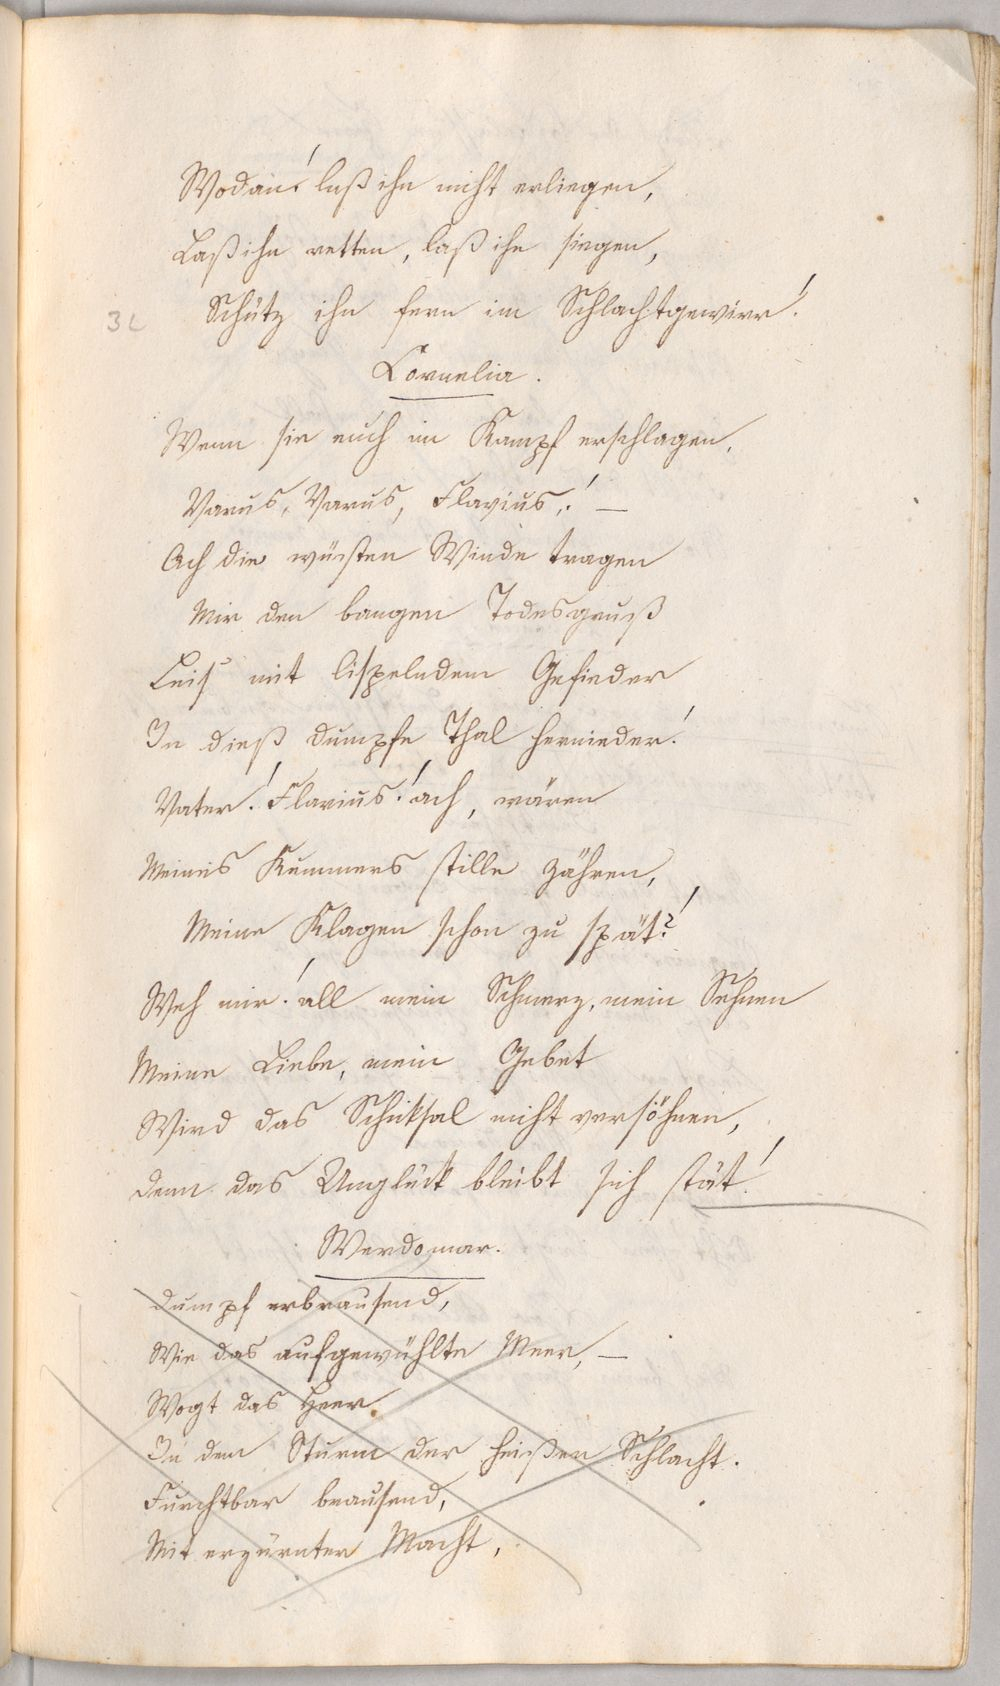 Wodan! laß ihn nicht erliegen,
Laß ihn retten, laß ihn siegen,
Schütz ihn fern im Schlachtgewirr!
Cornelia.
Wenn sie euch im Kampf erschlagen,
Varus, Varus, Flavius,! —
Ach die wüsten Winde tragen
Mir den bangen Todesgruß
Leis' mit lispelndem Gefieder
In dieß dumpfe Thal hernieder!
Vater! Flavius! ach, wären
Meines Kummers stille Zähren,
Meine Klagen schon zu spät?!
Weh mir! all mein Schmerz, mein Sehnen
Meine Liebe, mein Gebet
Wird das Schicksal nicht versöhnen,
Denn das Unglück bleibt sich stät!
Werdomar.
Dumpf erbrausend,
Wie das aufgewühlte Meer, —
Wogt das Heer
In dem Sturm der heißen Schlacht.
Furchtbar brausend,
Mit erzürnter Macht,